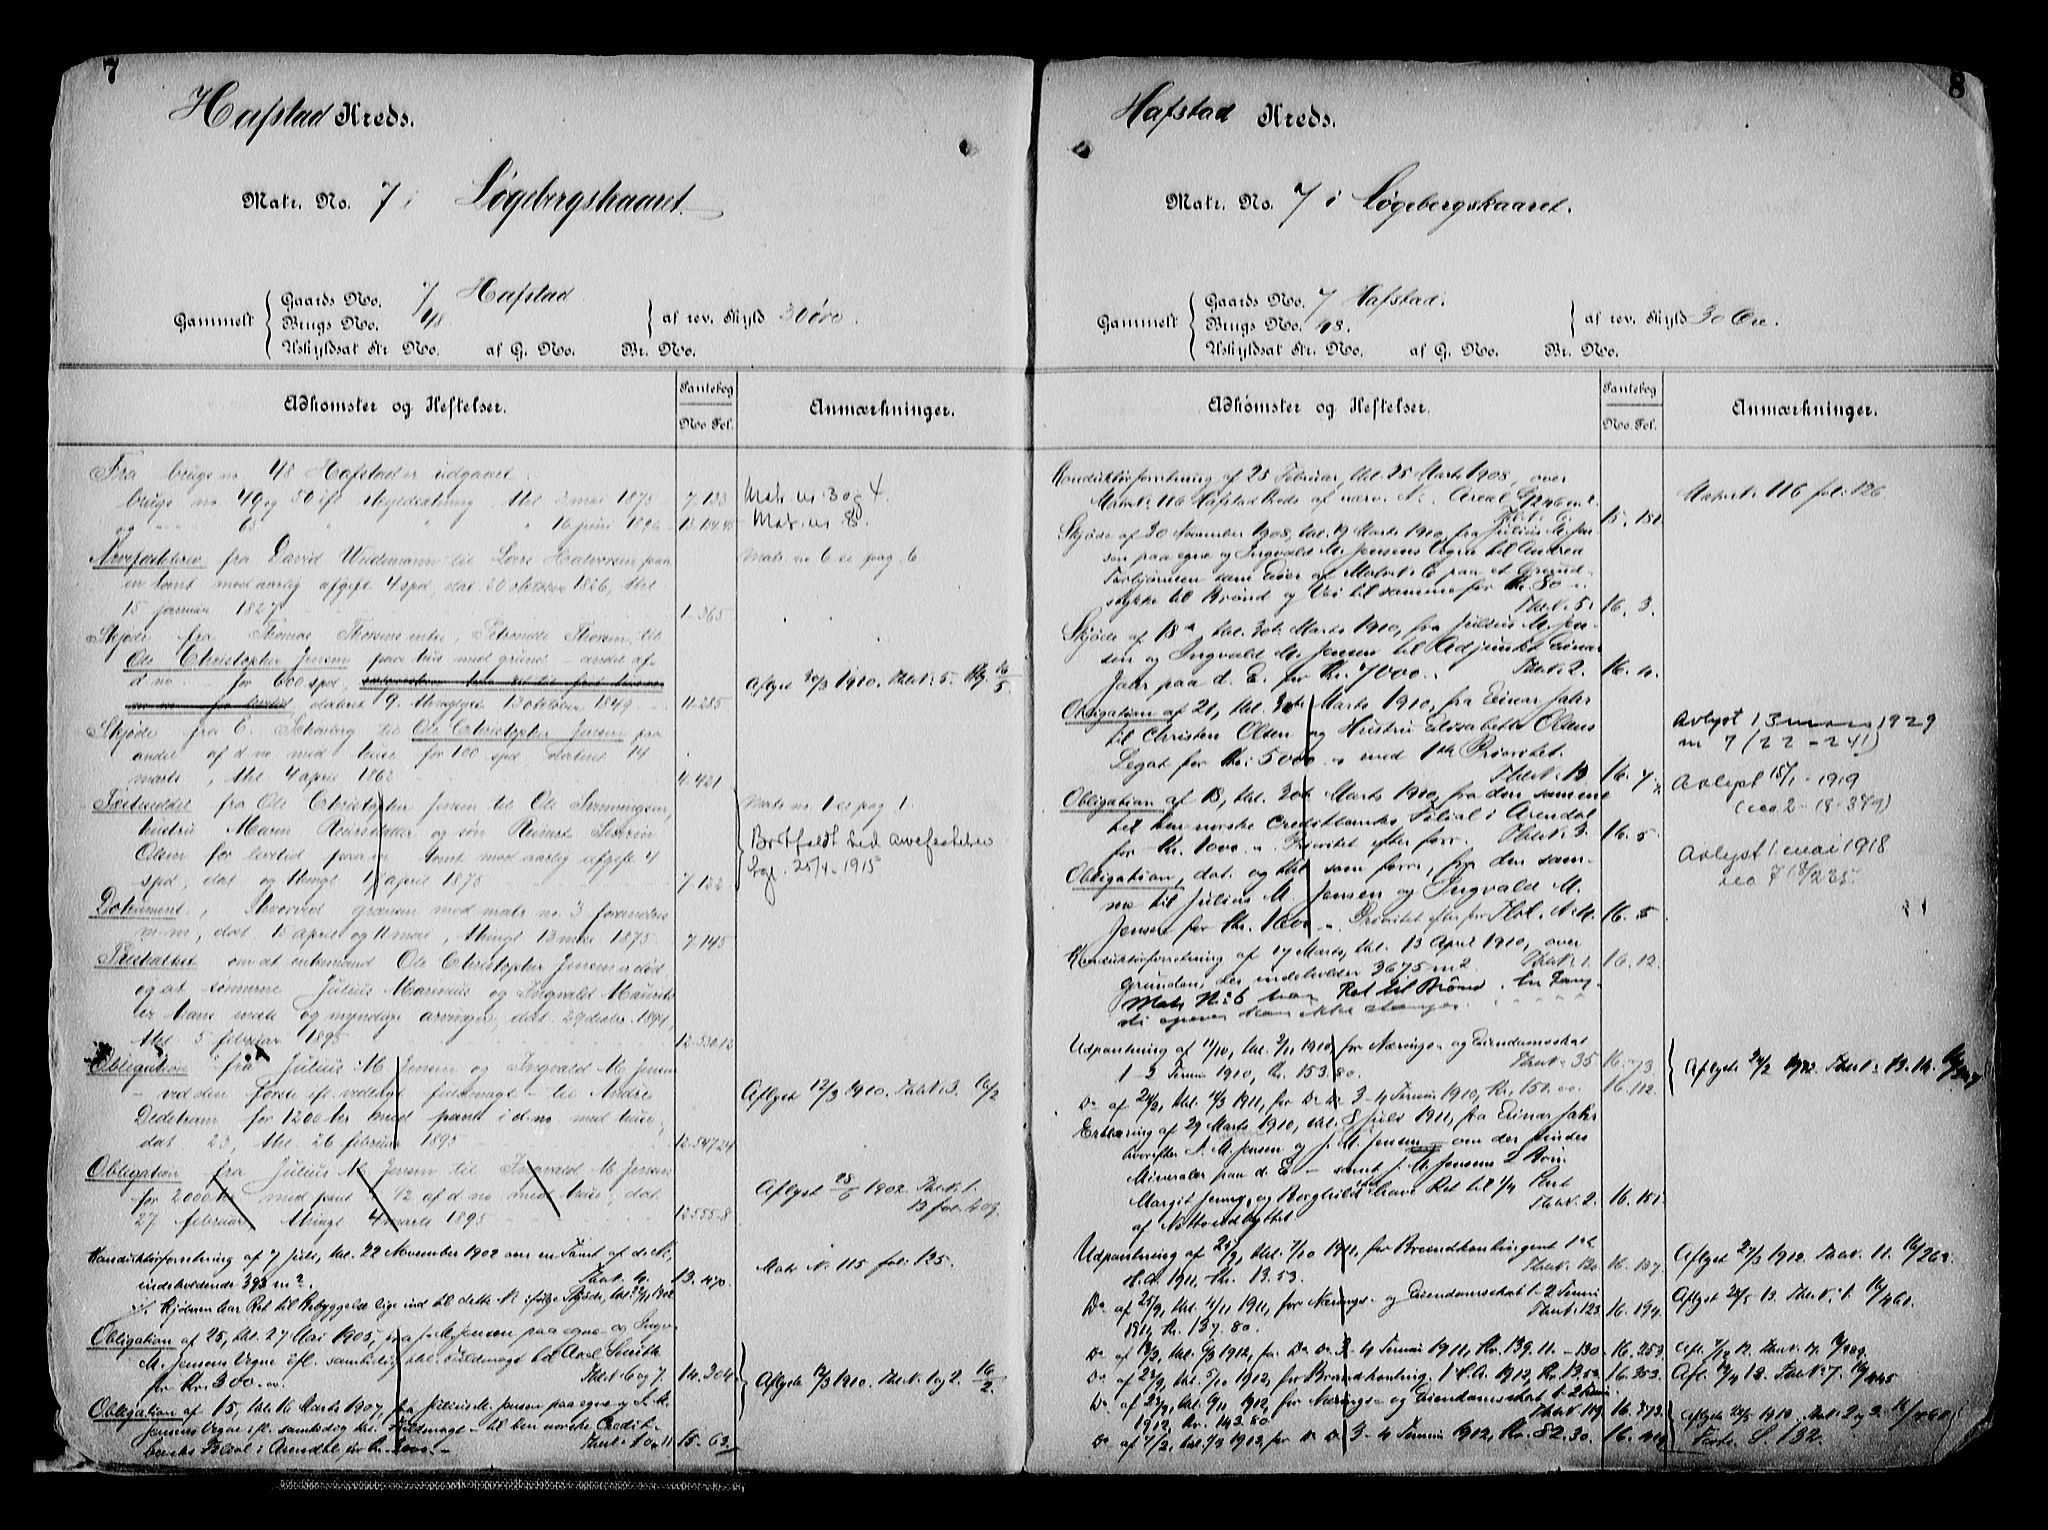 7
Hafstad Kreds.
Matr. No. 7 i Løgebergskaaret.
Gammelt
Gaards No. 7 Hafstad
Brugs No. 48
Uskyldsat Nr. No. af G. No. Br. No.
af rev. Skyld 30 øre.
Adkomster og Heftelser.
Pantebog
No Fol.
Anmærkninger.
Fra brugs no 48 Hafstad er udgaaet
brugs no 49 og 50 ifl. skyldsætning, thl. mai 1875 - 7.133
Matr no 3 og 4.
og 16 juni 1886
Matr. no 8.
Arvefestebrev fra David Weidemann til Lars Halvorsen paa
Matr no 6 se pag 6
en tomt med aarlig afgift 4 spd, dat 20 oktober 1826, thl
15 januar 1827 1.365
Skjøde fra Thomas Thorsens enke, Thorsen, til
Ole Christopher Jensen paa hus med grund - andel af
d no. for 600 spd,
Aflyst 1910. Tht. 5. 16/5.
dateret 9. thinglyst 13 oktober 1849 - 11.285
Skjøde fra E. til Ole Christopher Jensen paa
andel af d no med huse for 100 spd dateret 14
marts, thl 4 april 1862 4.421
Festeseddel fra Ole Christopher Jensen til Ole
Matr no. 1 se pag 1.
hustru Maren og søn
Bortfaldt ved arvefestebrev
Olsen for levetid paa en tomt med aarlig afgift 4
Tgl. 25/4 - 1915
spd, dat og thingl april 1875 7.122
Dokument, hvorved grænsen med matr no. 3 forandres
m m, dat. 15 april og 11 mai, thingl 13 mai 1875. 7.145
om at enkemand Ole Christopher Jensen er død
og at sønnerne Julius Marinius og Ingvald Mauritz
er hans eneste og myndige arvinger, dat. 29 decbr. 1894,
thl 5 februar 1895 12.530.12
Obligation fra Julius M Jensen og Ingvald M Jensen
- ved den første ifl. vedlagt fuldmagt - til André
Aflyst 12/3 1910. Tht. 3. 16/2
Dedekam for 1200 kr med pant i d. no med huse,
dat 23, thl. 26 februar 1895 12.547.24
Obligation fra Julius M. Jensen til Ingvald M Jensen
for 2000 kr med pant i 1/2 af d no med huse, dat
Aflyst 25/6 1902. Tht. 1.
27 februar, thingl 4 marts 1895 12.555.8
13 fol. 409.
Konduktørforretning af 7 Juli, thl. 22 November 1902 over en Tomt af d. N.,
Matr N. 115 fol. 125.
indeholdende 393 m2. Tht. 4. 13.470.
har Ret til Bebyggelse lige ind til dette N. ifølge Skjøde, thl. 22/11 1902
Obligation af 25, thl. 27 Mai 1905, fra J. M. Jensen paa egne og Ingv.
M. Jensens Vegne ifl. samtidig thl. Fuldmagt til Axel Smith
for Kr. 300.00 Tht. 6 og 7. 14.304.
Aflyste 12/3 1910. Tht. 1 og 2. 16/2.
Obligation af 15, thl. 16 Marts 1907, fra Julius M. Jensen paa egne og I. M.
Jensens Vegne ifl. samtidig thl. Fuldmagt - til Den norske Credit-
banks Filial i Arendal for Kr. Tht. 10 og 11 15.63.
8
Hafstad Kreds.
Matr. No. 7 i Løgebergskaaret.
Gammelt
Gaards No. 7 Hafstad.
Brugs No. 48.
Uskyldsat Nr. No. af G. No. Br. No.
af rev. Skyld 30 Øre.
Adkomster og Heftelser.
Pantebog
No. Fol.
Anmærkninger.
Konduktørforretning af 25 Februar, thl. 25 Marts 1908, over
Matr. N. 116 Hafstad Kreds af nærv. N. Areal 246 m2.
Matr. N. 116 fol. 126
Tht. 6. 15.151.
Skjøde af 30 November 1908, thl. 12 Marts 1910, fra Julius M. Jen-
sen paa egne og Ingvald M. Jensens Vegne til Andrea
Torbjørnsen som Eier af Matr. N. 6 paa et Grund-
stykke til Brønd og Vei til samme for Kr. 80
Tht. 5. 16.3.
Skjøde af 18, thl. 30 Marts 1910, fra Julius M. Jen-
sen og Ingvald M. Jensen til Adjunkt Einar
Jahr paa d. E. for Kr. 7000. Tht. 2. 16.4.
Obligation af 21, thl. 30 Marts 1910, fra Einar Jahr
til Christen Olsen og Hustru Elisabeth Olsens
Legat for Kr. 5000.00 med 1ste Prioritet.
Tht. 13 16.7.
Avlyst 13 mars 1929
no 7 (22-241)
Obligation af 18, thl. 30 Marts 1910, fra den samme
til Den norske Creditbanks Filial i Arendal
for Kr. 1000.00 Prioritet efter forr. Tht. 3. 16.5.
Avlyst 15/1 - 1919
(no 2-18-349)
Obligation, dat. og thl. som forr., fra den sam-
me til Julius M. Jensen og Ingvald M.
Jensen for Kr. 1600.00. Prioritet efter forr. Tht. 4. 16.5
Avlyst 1 mai 1918
no 7 18/235.
Konduktørforretning af 17 Marts, thl. 13 April 1910, over
Grunden, der indeholder 3675 m2. Tht. 1. 16.12.
Matr. N. 6 har Ret til Brønd.
Udpantning af 11/10, thl. 9/11 1910, for Nærings- og Eiendomsskat
1-2 Termin 1910, Kr. 153.80. Tht. 35 16.73.
Aflyste 24/2 1912. Tht. 13. 14. 16/247
Do af 24/2, thl. 14/3 1911, for Do Do 3-4 Termin 1910, Kr. 151.00. 16.112.
Erklæring af 29 Marts 1910, thl. 8 Juli 1911, fra Einar Jahr
hvorefter I. M. Jensen og J. M. Jensen - om der findes
Mineraler paa d. E. - samt J. M. Jensens 2 Børn
Margit Jenny og Borghild have Ret til 1/4 Part
af Nettoudbyttet. Tht. 2. 16.151.
Udpantning af 25/9, thl. 7/10 1911, for Brandkontingent 1ste
H. A. 1911, Kr. 13.53. Tht. 120 16.137.
Aflyst 27/3 1912. Tht. 11. 16/262.
Do af 25/9, thl. 4/11 1911, for Nærings- og Eiendomsskat 1-2 Termin
1911, Kr. 137.80. Tht. 123 16.194.
Aflyst 24/5 13. Tht. 1. 16/460.
Do af 14/2, thl. 6/3 1912, for Do Do 3-4 Termin 1911, Kr. 139.11. - 130 - 16.253.
Do af 24/9, thl. 5/10 1912, for Brandkonting. 1 H. A. 1912, Kr. 13.53 16.353.
Afl. 19/4 13. Tht. 7. 16/445
Do af 23/9, thl. 9/11 1912, for Nærings- og Eiendomsskat 1-2 Termin
1912, Kr. 143.80 Tht. 119 16.373.
Do af 7/2, thl. 1/3 1913, for Do Do 3-4 Termin 1912, Kr. 82.30. 16.419
Forts. S. 132.